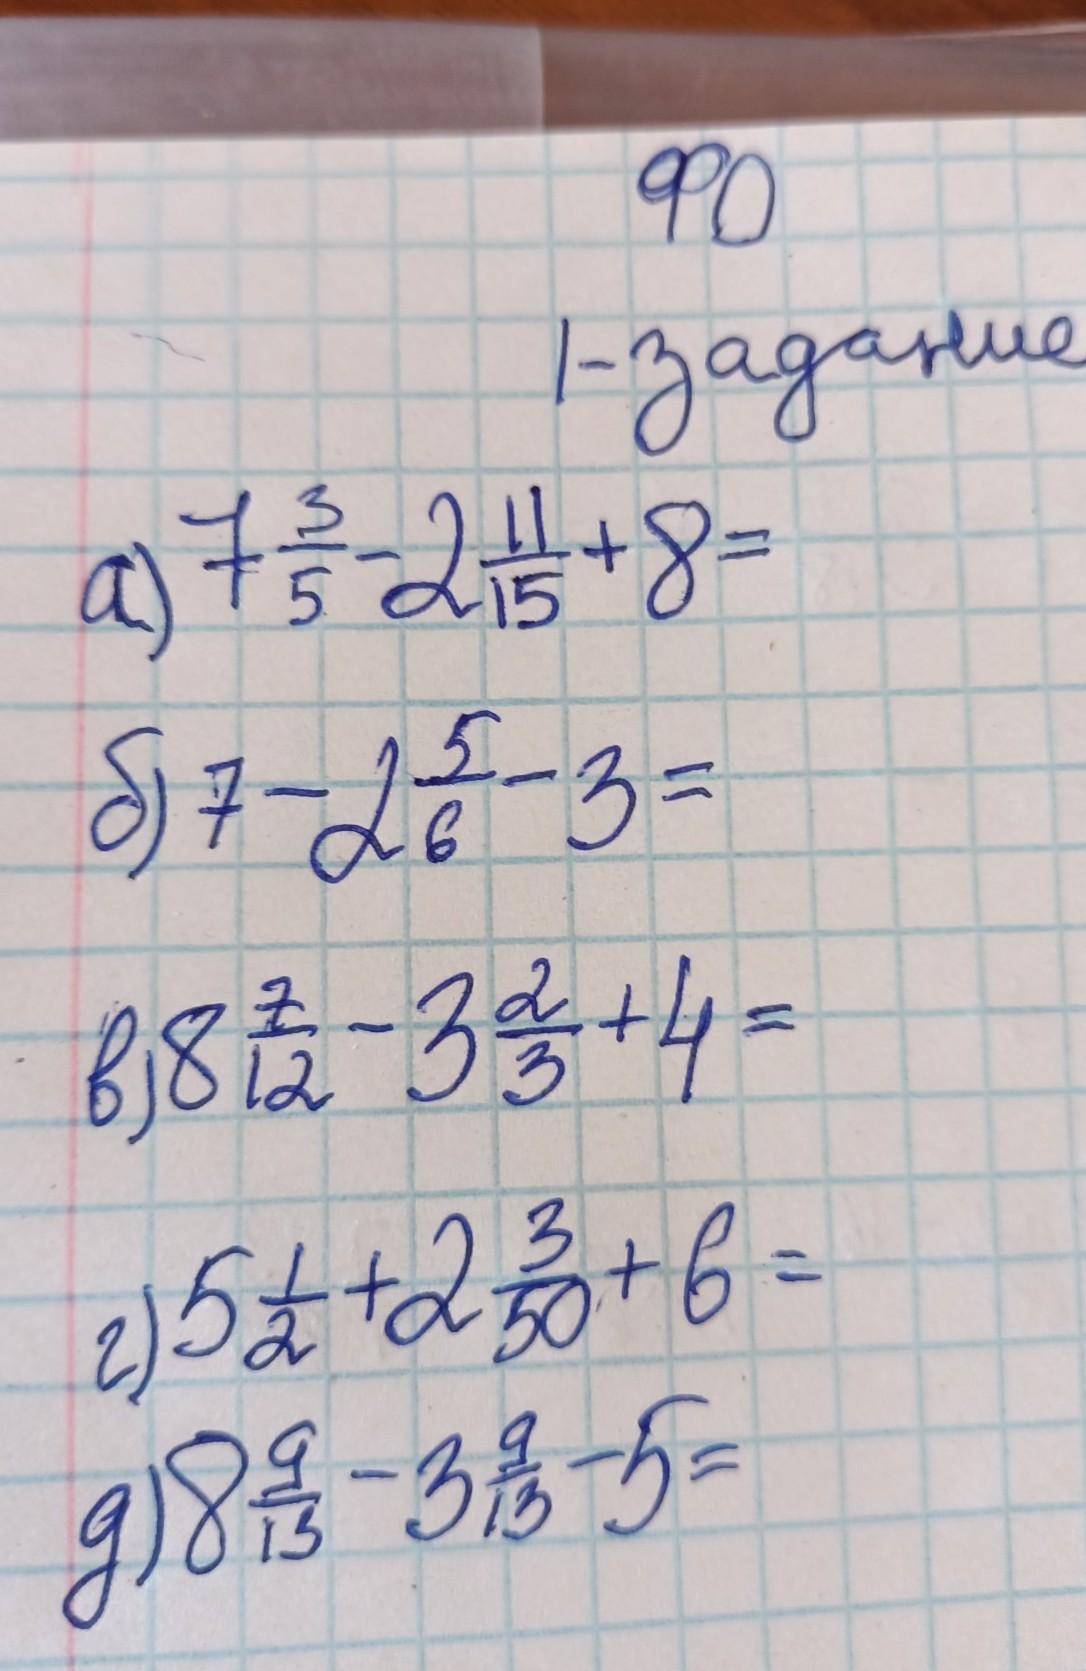 ФО
1-задание
а) 7 3/5 - 2 11/15 + 8 =
б) 7 - 2 5/6 - 3 =
в) 8 7/12 - 3 2/3 + 4 =
г) 5 1/2 + 2 3/50 + 6 =
д) 8 9/13 - 3 9/13 - 5 =